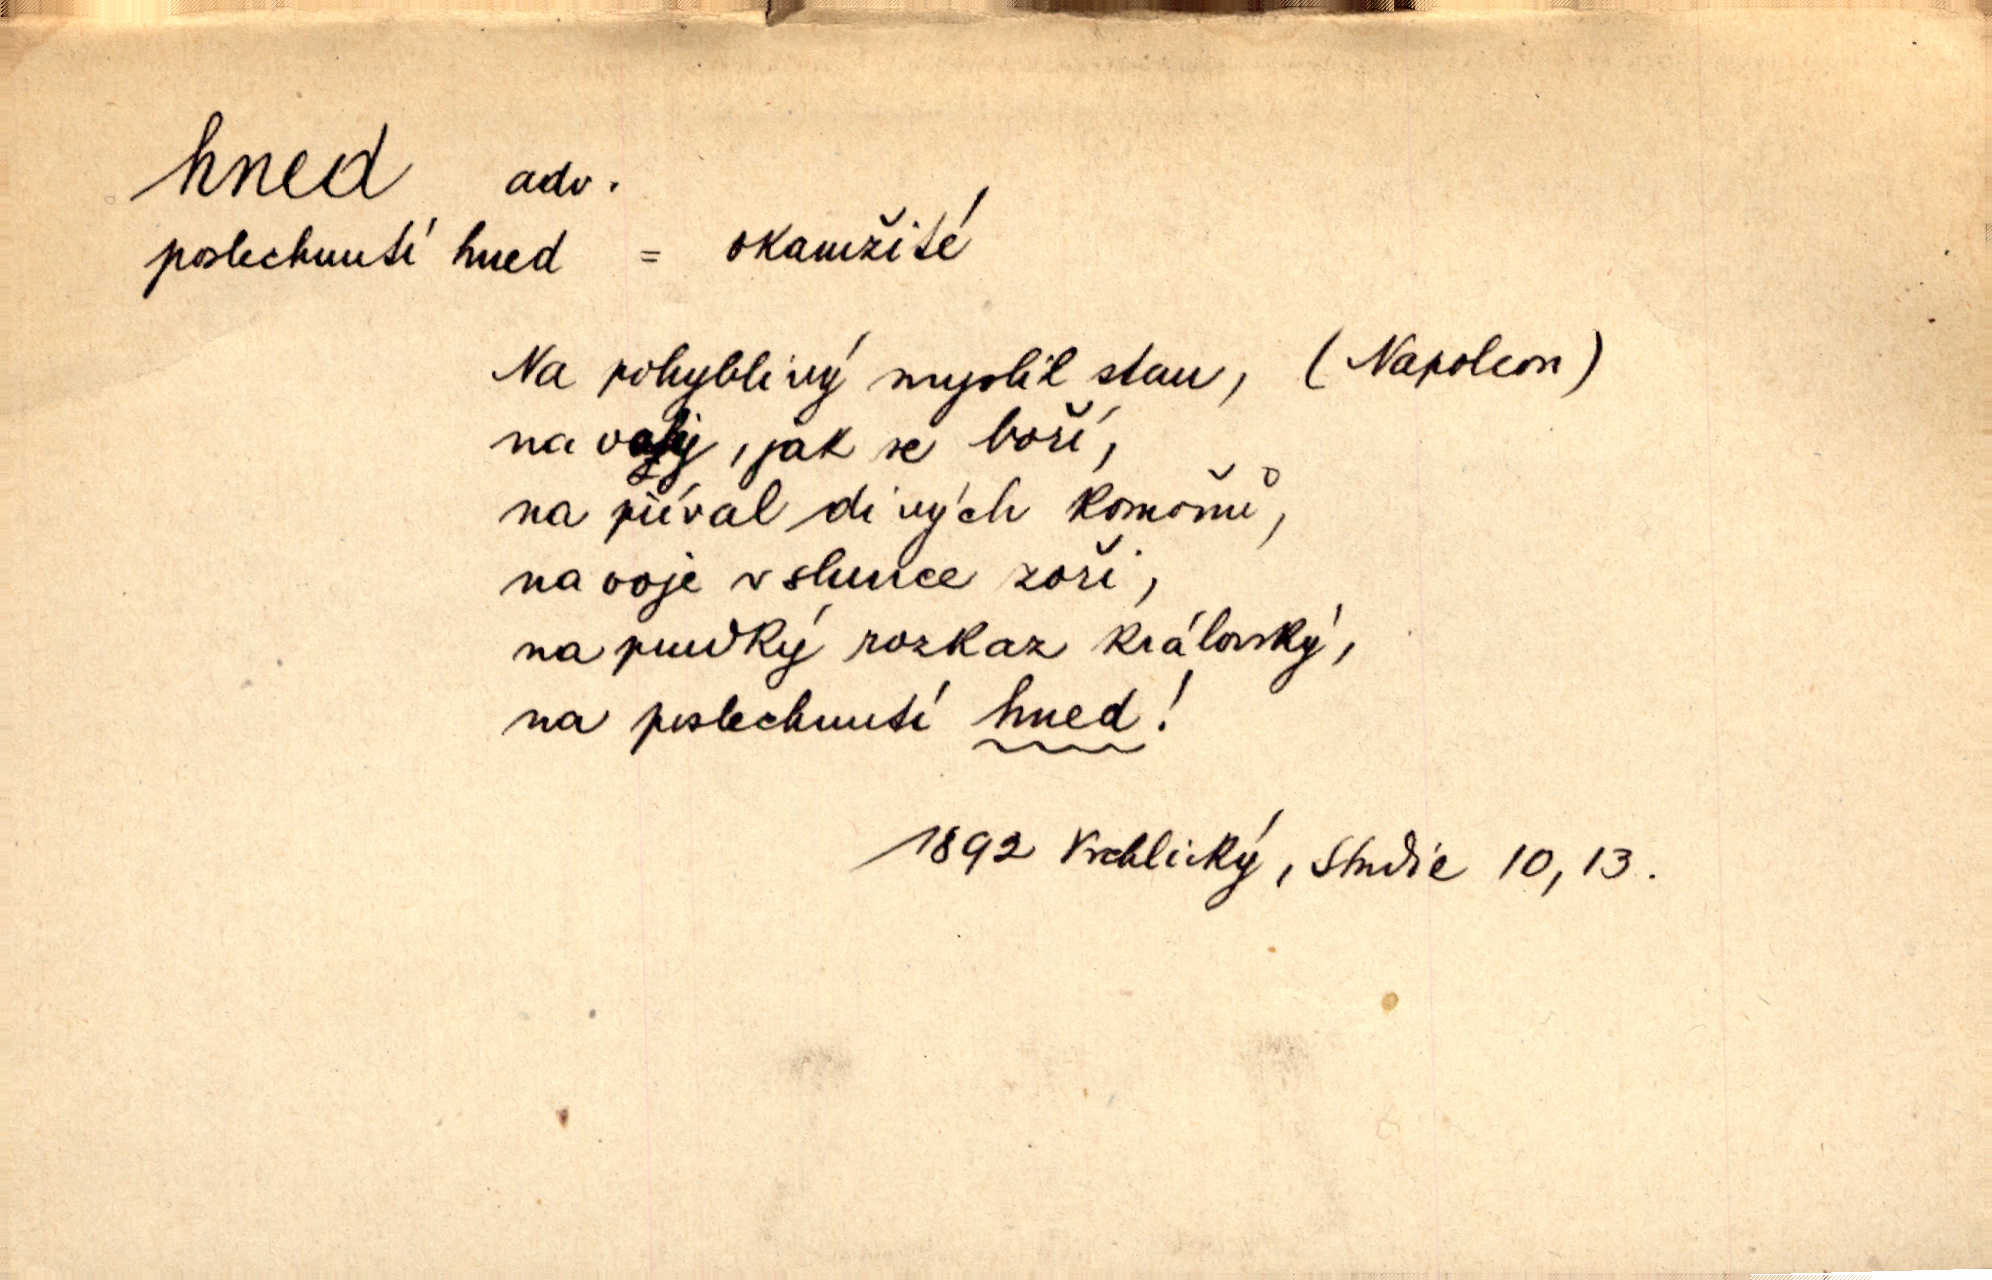 hned adv.
poslechnutí hned = okamžité
Na pohyblivý myslil stan, (Napoleon)
na valy, jak se boří,
na příval divých komoňů,
na voje v slunce zoři,
na prudký rozkaz královský,
na poslechnutí hned!
1892 Vrchlický, Studie 10, 13.